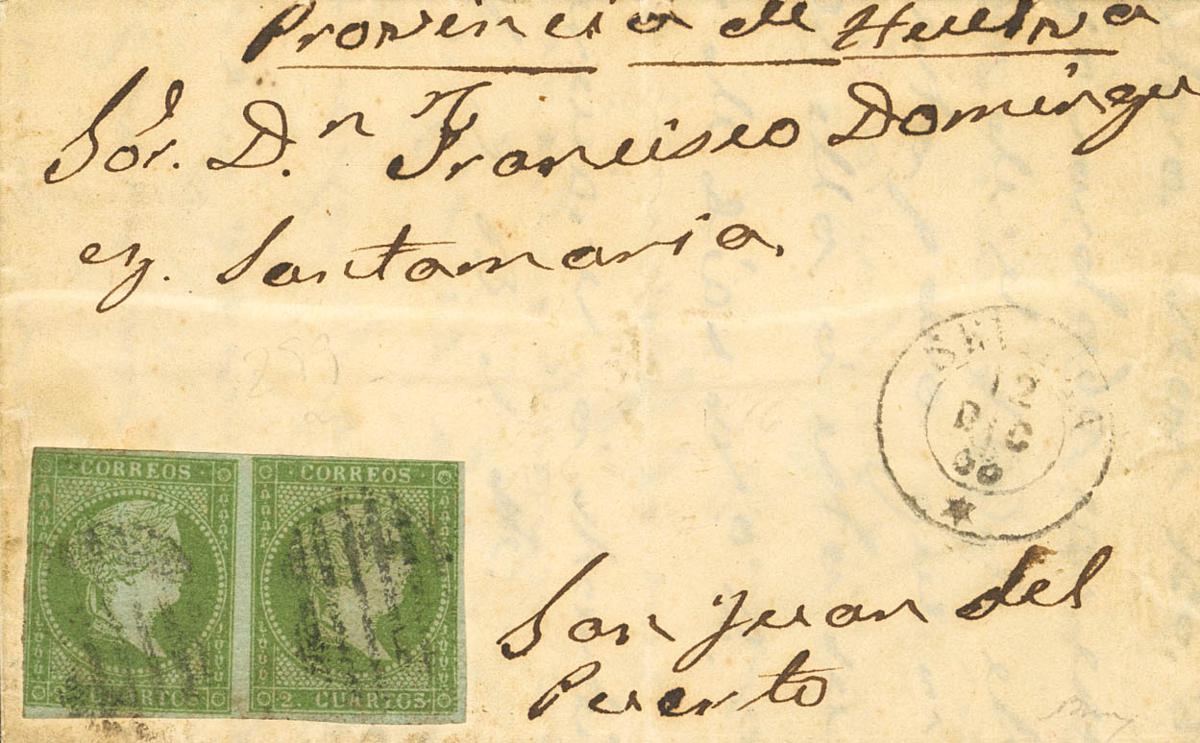 Provincia de Huelva
Sór. D.n Francisco Domingu
ez. Santamaria.
SEVILLA
12
DIC
56
CORREOS
CORREOS
CUARTOS
2. CUARTOS
San Juan del
Puerto